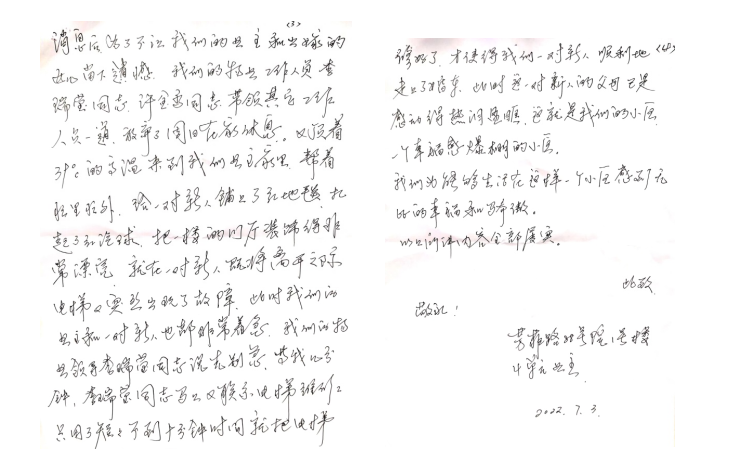 (3)
消息后,为了不让我们的业主和出嫁的
远心留下遗憾。我们的物业工作人员查
瑞萤同志、许 同志带领其它工作
人员一道,放弃了周日在家休息。又顶着
39°的高温来到我们业主家里,帮着
驱里驱外,给一对新人铺上了红地毯,扎
起了红汽球,把一楼的门厅装饰得非
常漂亮,就在一对新人既将离开之际
电梯又突然出现了故障,此时我们的
业主和一对新人也都非常着急,我们的物
业领导查瑞萤同志说先别急,等我几分
钟,查瑞萤同志马上又联系电梯维修
只用了短短不到十分钟时间就把电梯
(4)
修好了,才使得我们一对新人顺利地
走上了婚车,此时这一对新人的父母已是
感动得热泪盈眶,这就是我们的小区
一个幸福感爆棚的小区。
我们为能够生活在这样一个小区感到无
比的幸福和骄傲。
以上所述内容全部属实。
此致
敬礼!
芳菲路 号院1号楼
4单元业主
2022.7.3.